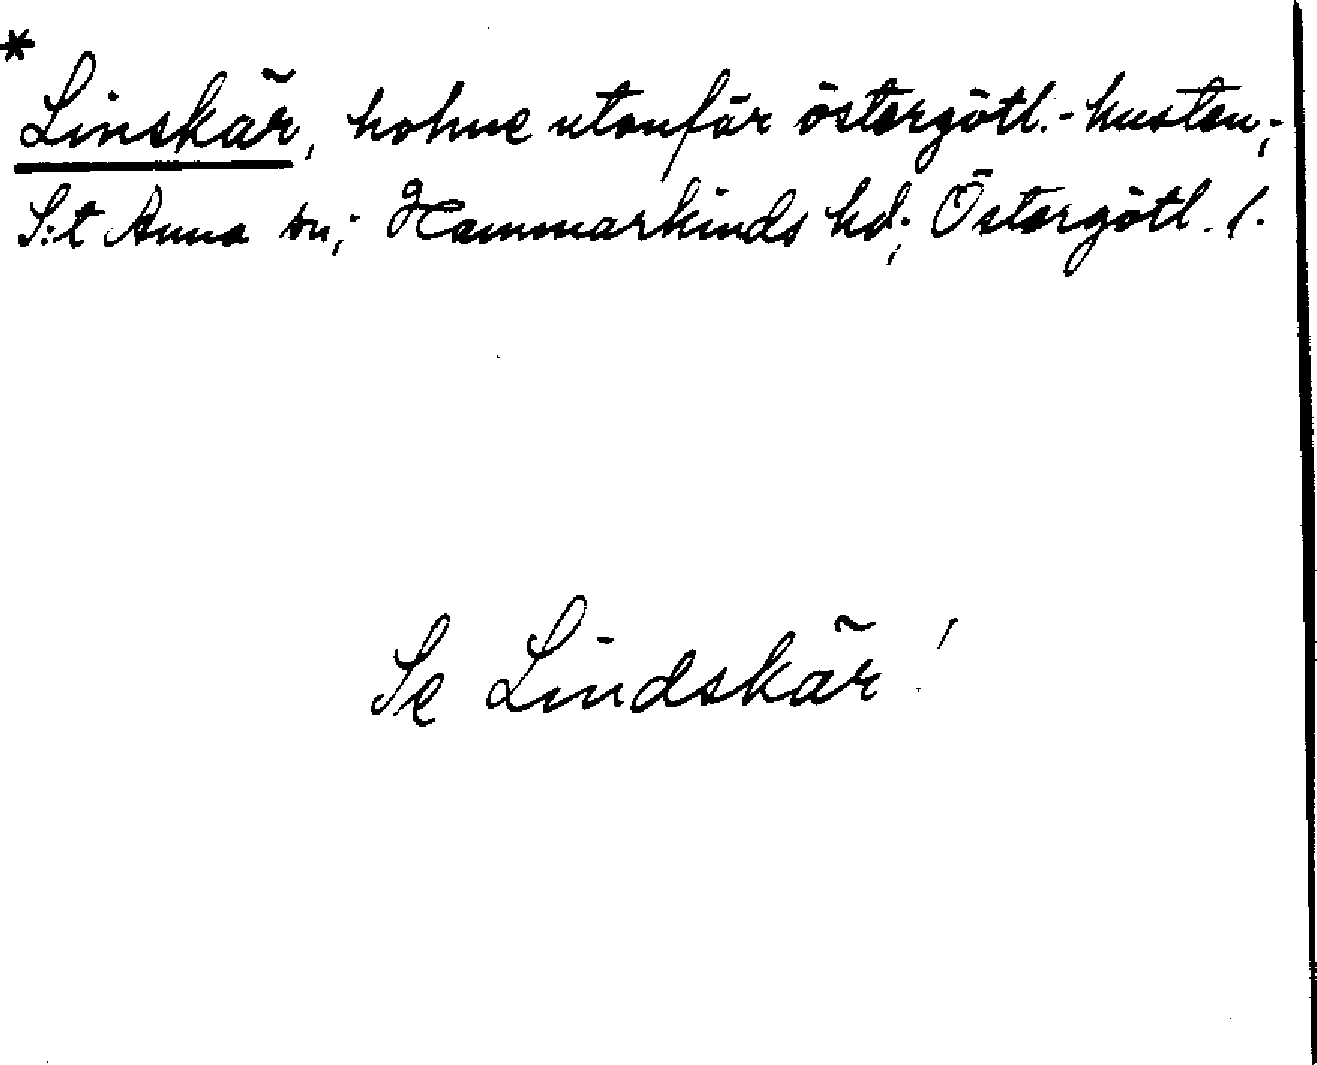 * Linskär, holme utanför östergötl.-kusten;
S:t Anna sn; Hammarkinds hd; Östergötl. l.
Se Lindskär!